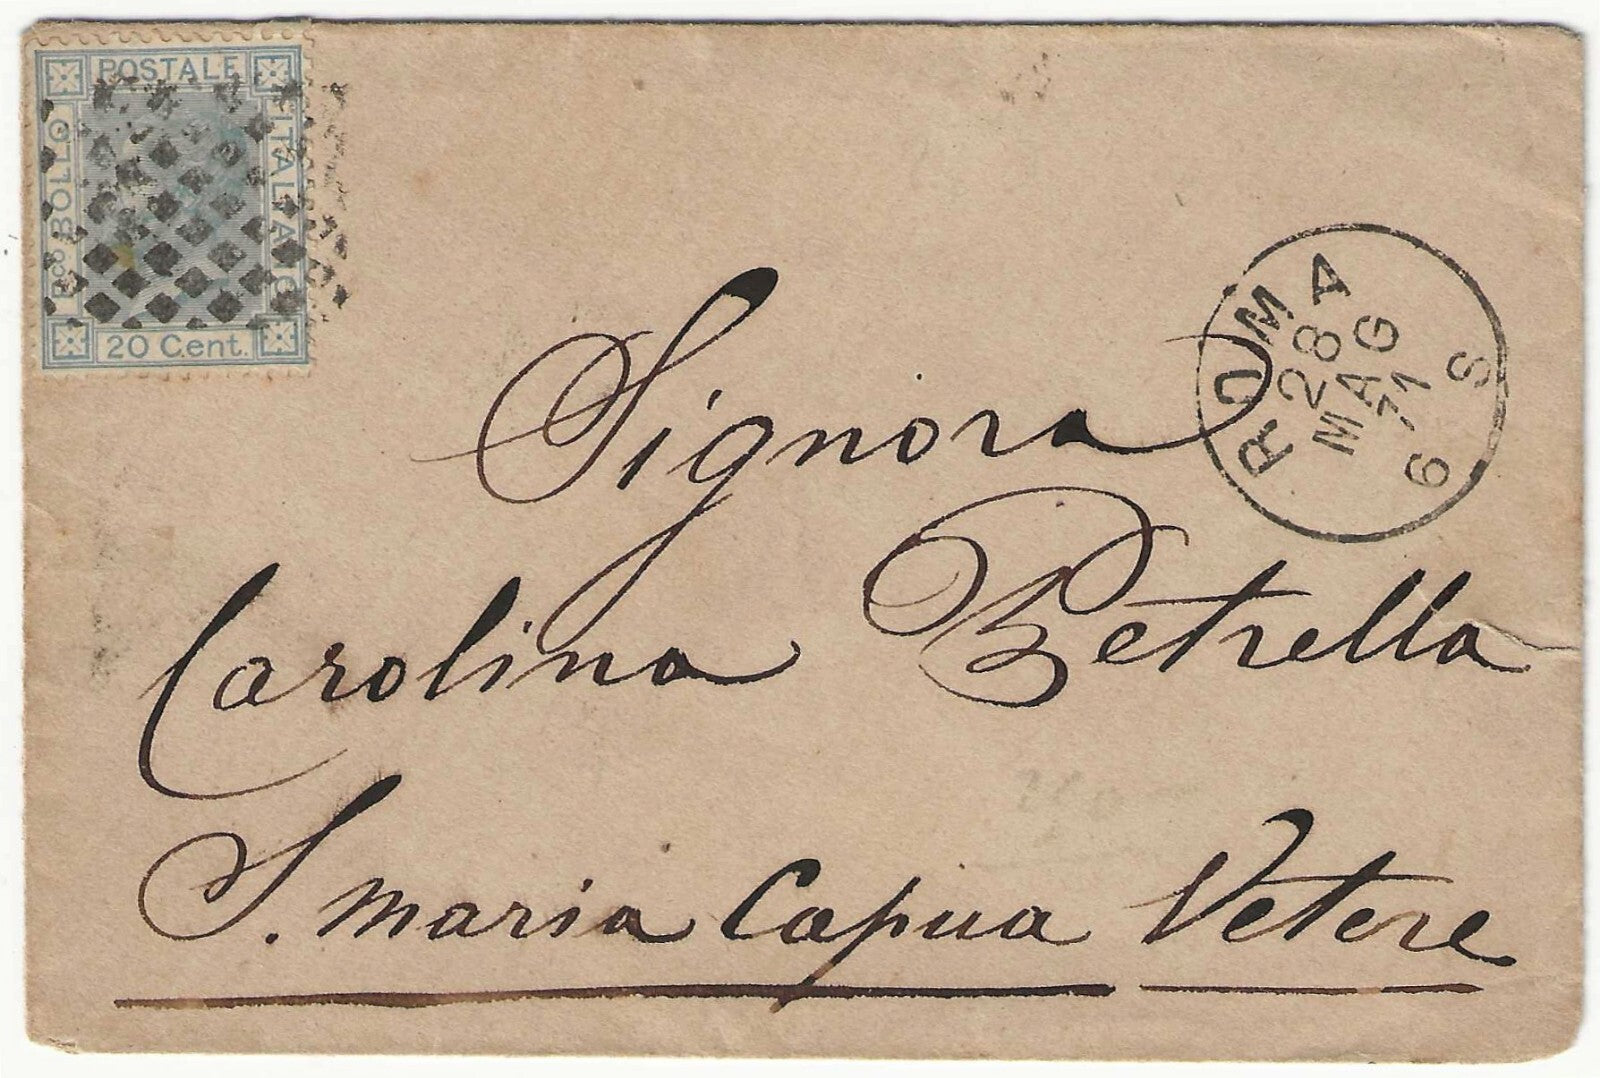 POSTALE
Bco BOLLO
ITALIANO
20 Cent.
ROMA
28
MAG
71
6 S
Signora
Carolina Petrella
S. Maria Capua Vetere